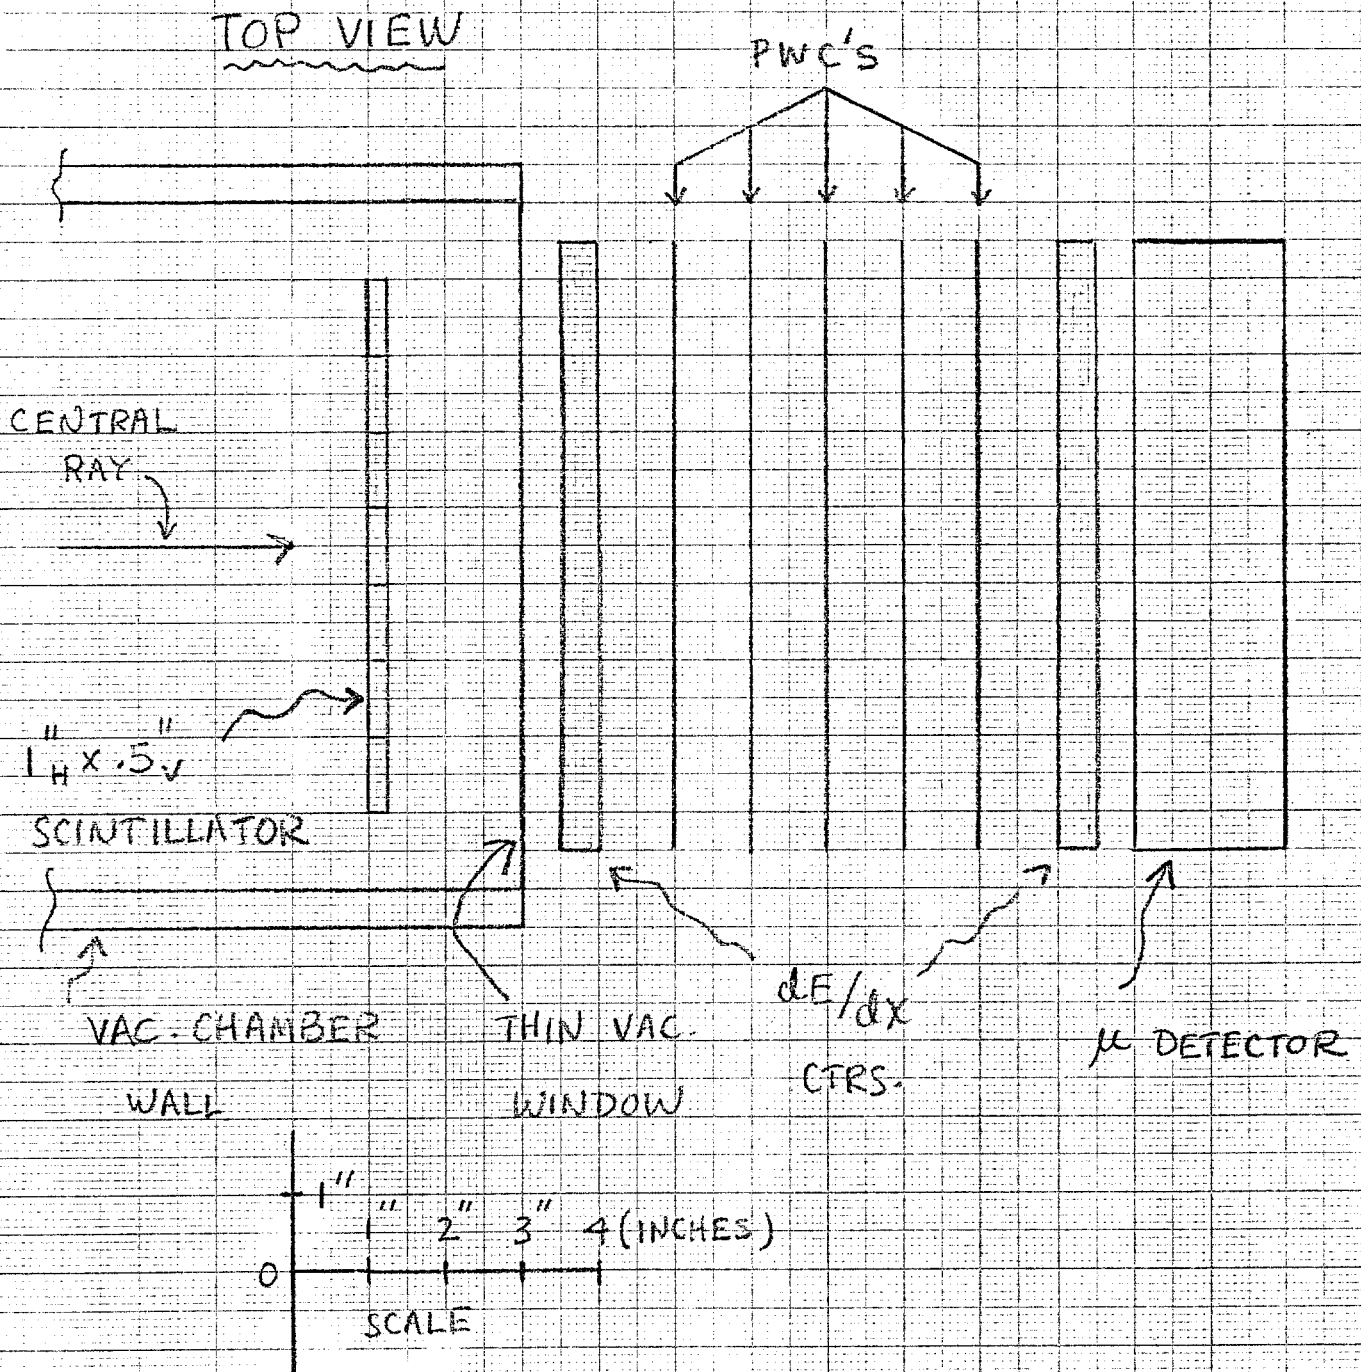 TOP VIEW
PWC's
CENTRAL
RAY
1"H x .5"V
SCINTILLATOR
VAC. CHAMBER
WALL
THIN VAC.
WINDOW
dE/dx
CTRS.
μ DETECTOR
1"
1" 2" 3" 4 (INCHES)
0
SCALE